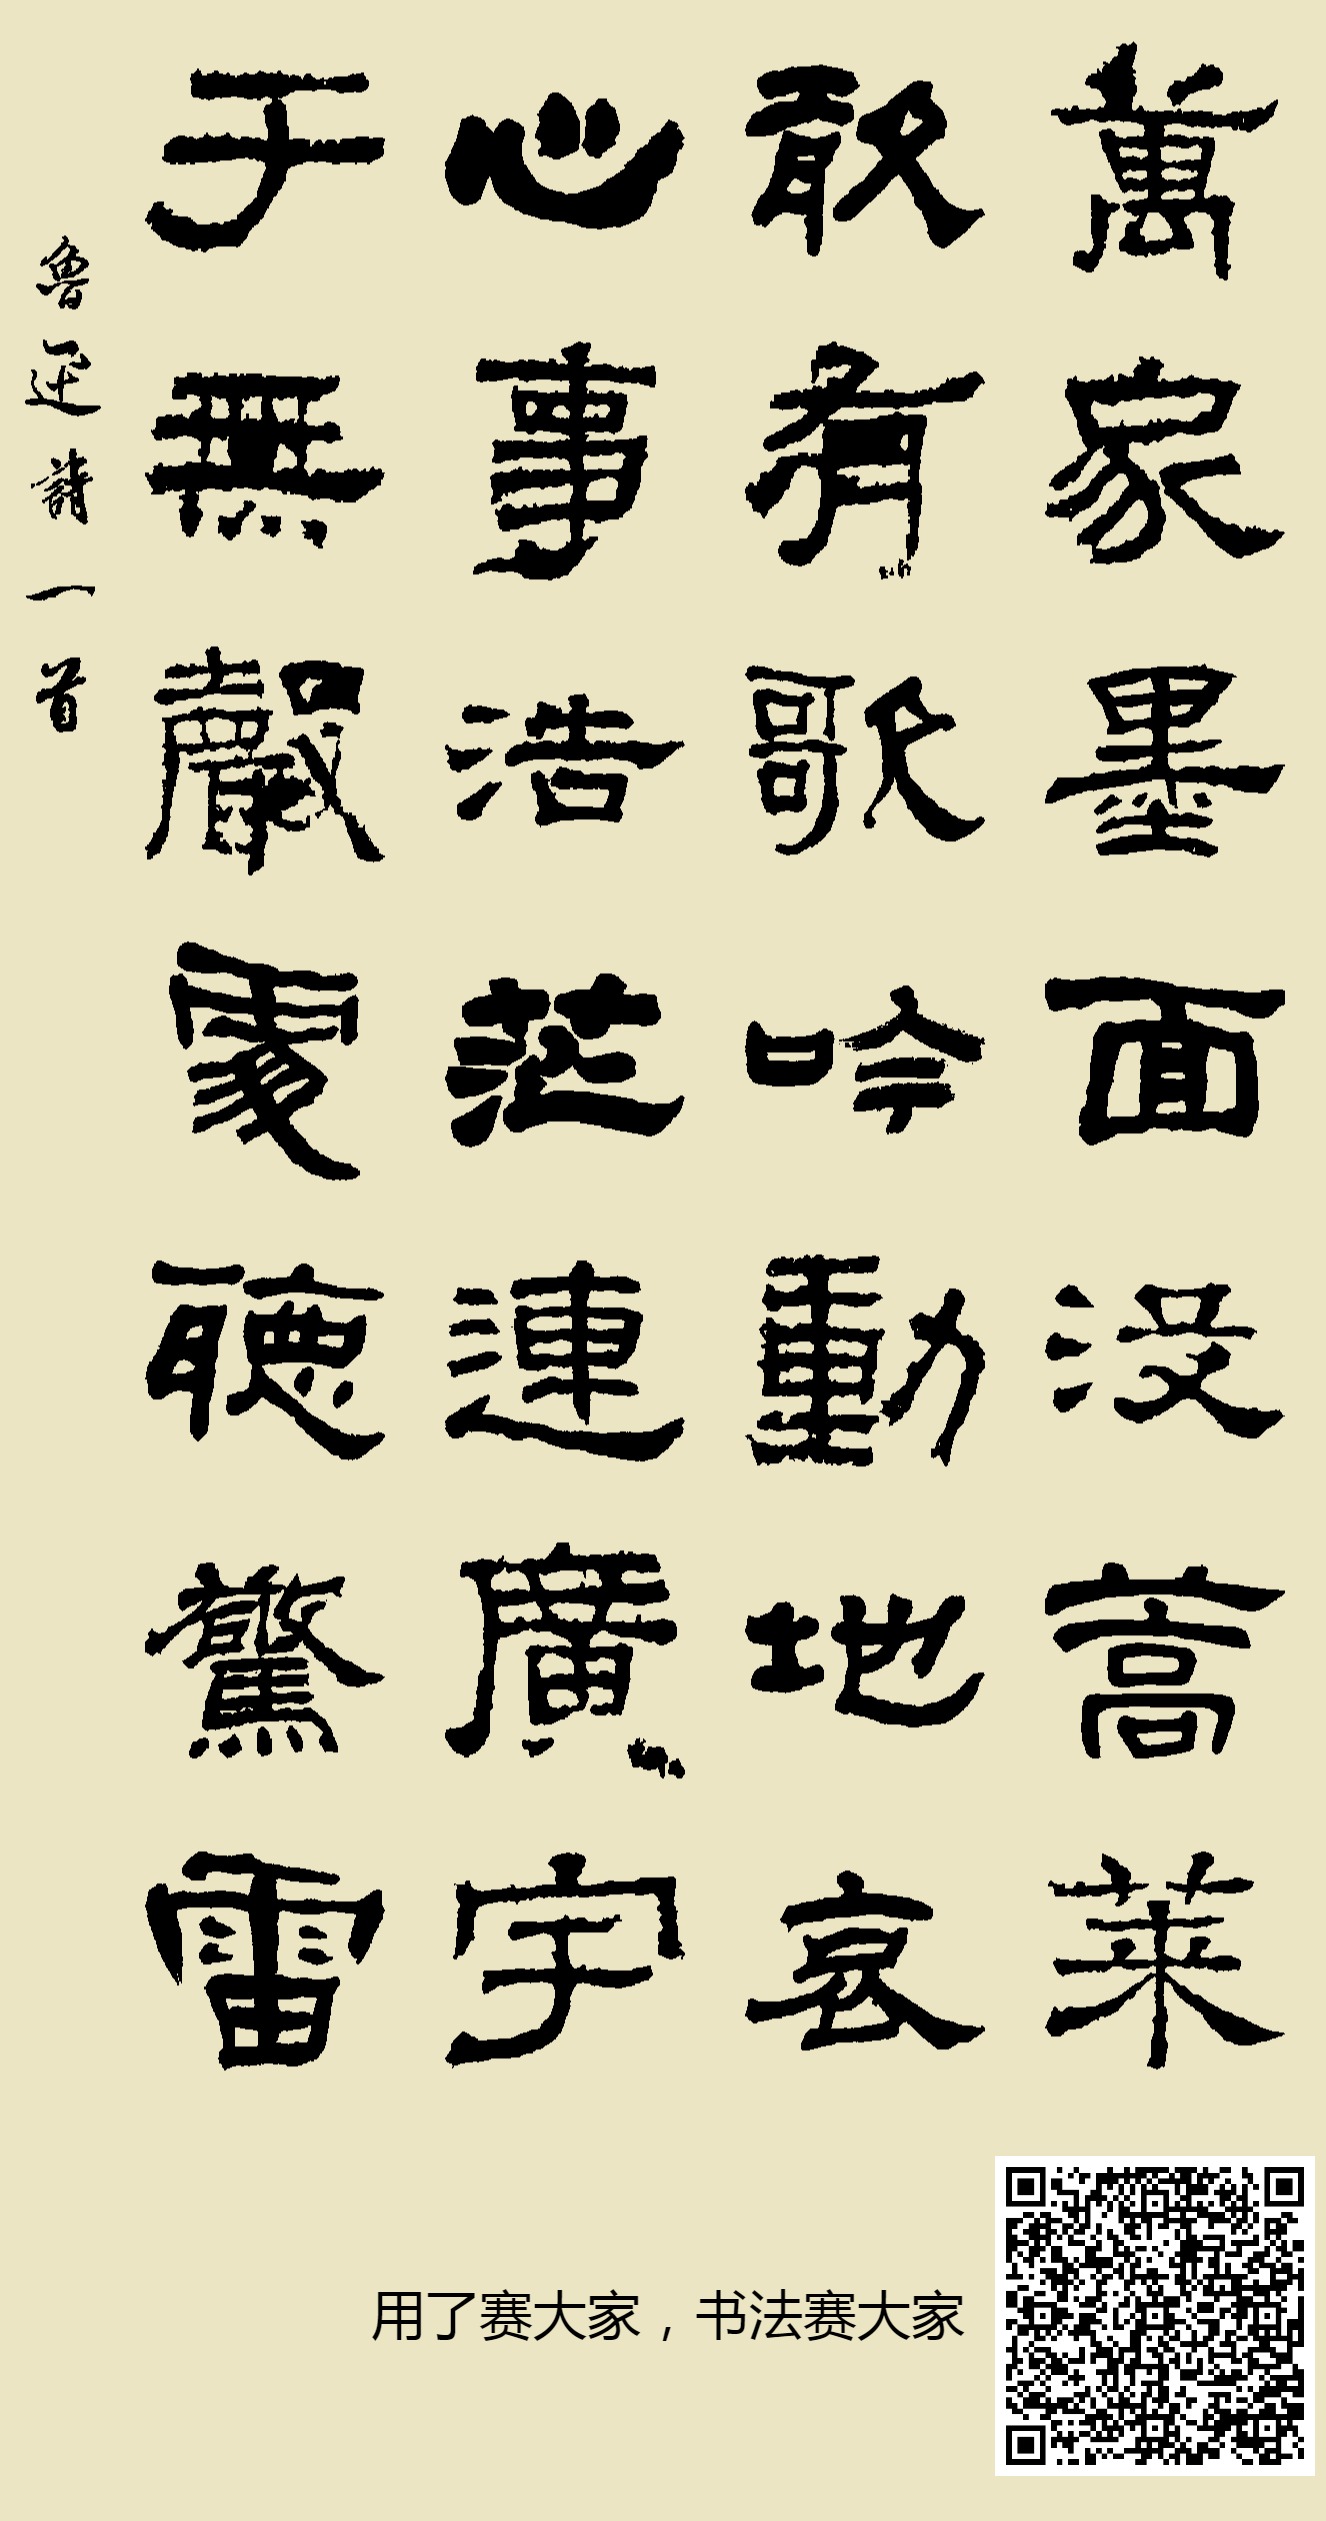 萬家墨面没蒿萊
敢有歌吟動地哀
心事浩茫連廣宇
于無聲處聽驚雷
魯迅詩一首
用了赛大家，书法赛大家